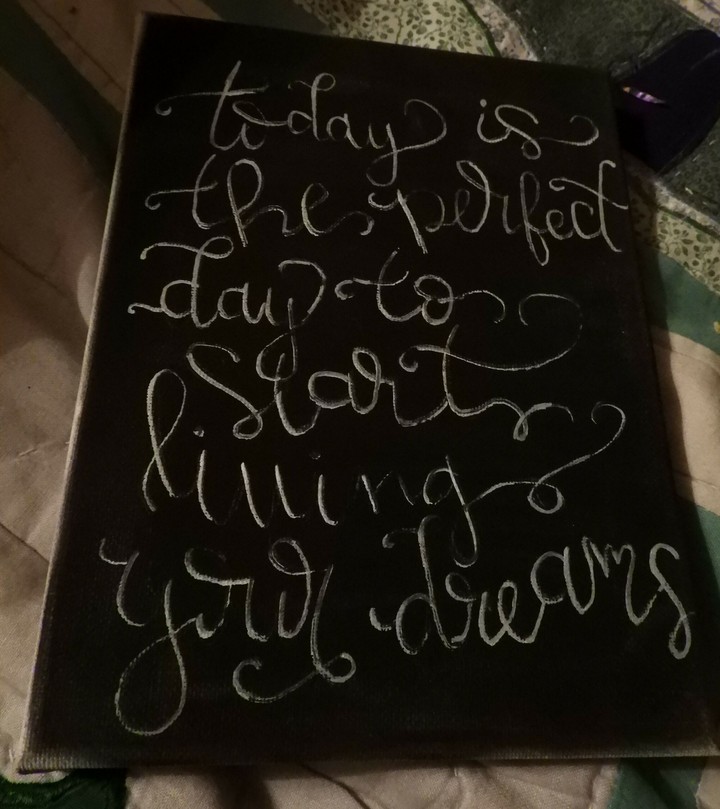 today is
the perfect
day to
start
living
your dreams